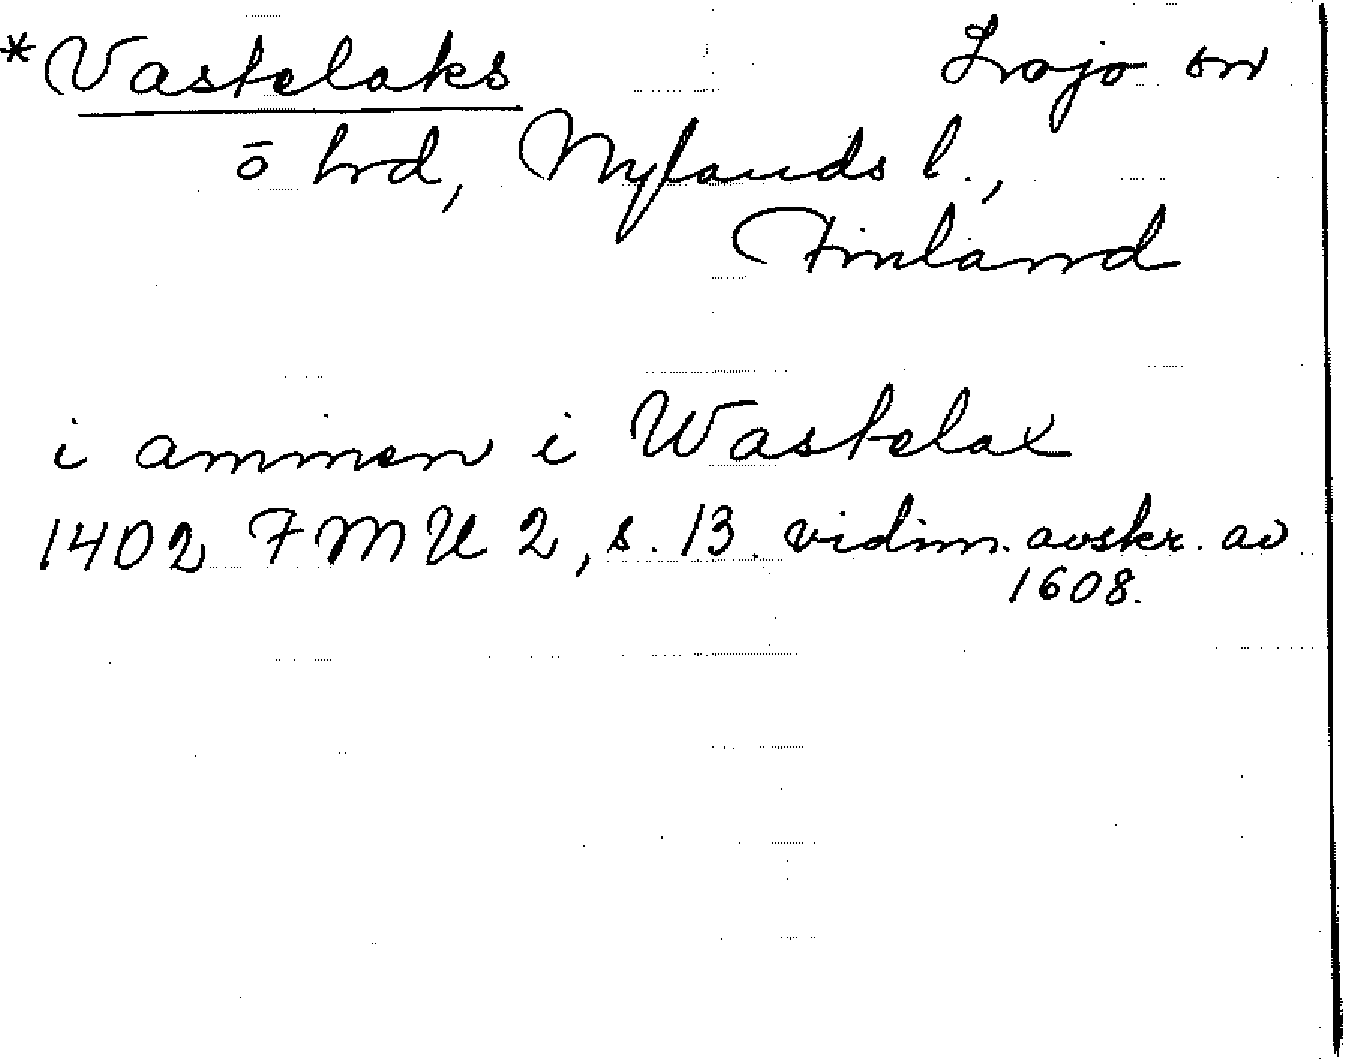 *Vastelaks Lojo sn
ō hrd, Nylands l.,
Finland
i ammen i Wastelax
1402 FMU 2, s. 13 vidim. avskr. av
1608.